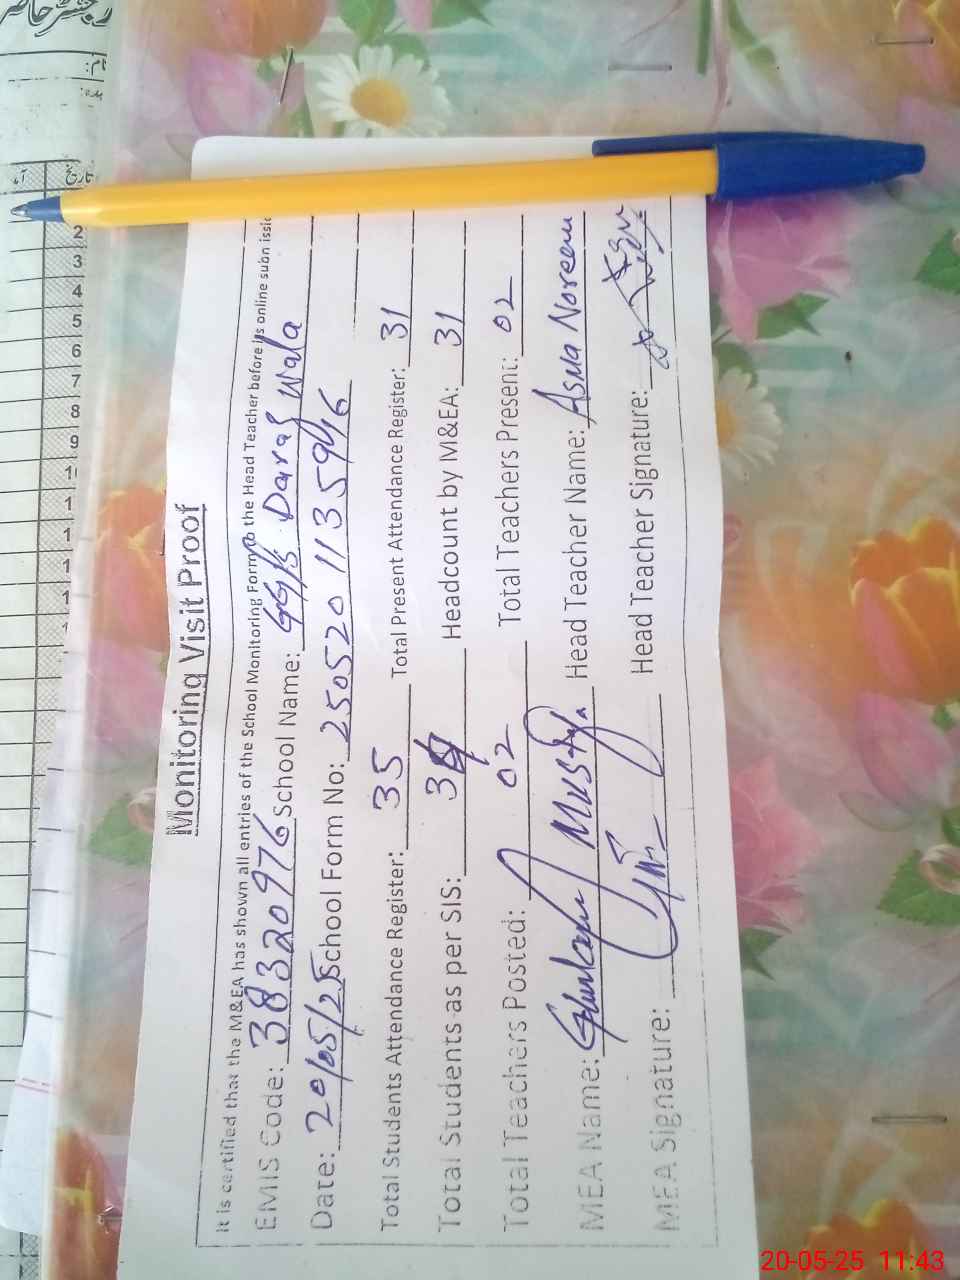 Monitoring Visit Proof
It is certified that the M&EA has shown all entries of the School Monitoring Form to the Head Teacher before its online
EMIS Code: 38320976 School Name: GGPS Daraf Wala
Date: 20/05/25 School Form No: 250520 11359446
Total Students Attendance Register: 35 Total Present Attendance Register: 31
Total Students as per SIS: 3 Headcount by M&EA: 31
Total Teachers Posted: 02 Total Teachers Present: 02
MEA Name: Mustafa Head Teacher Name: Asma Noreen
MEA Signature: Head Teacher Signature:
تاریخ
2
3
4
5
6
7
8
9
20-05-25 11:43